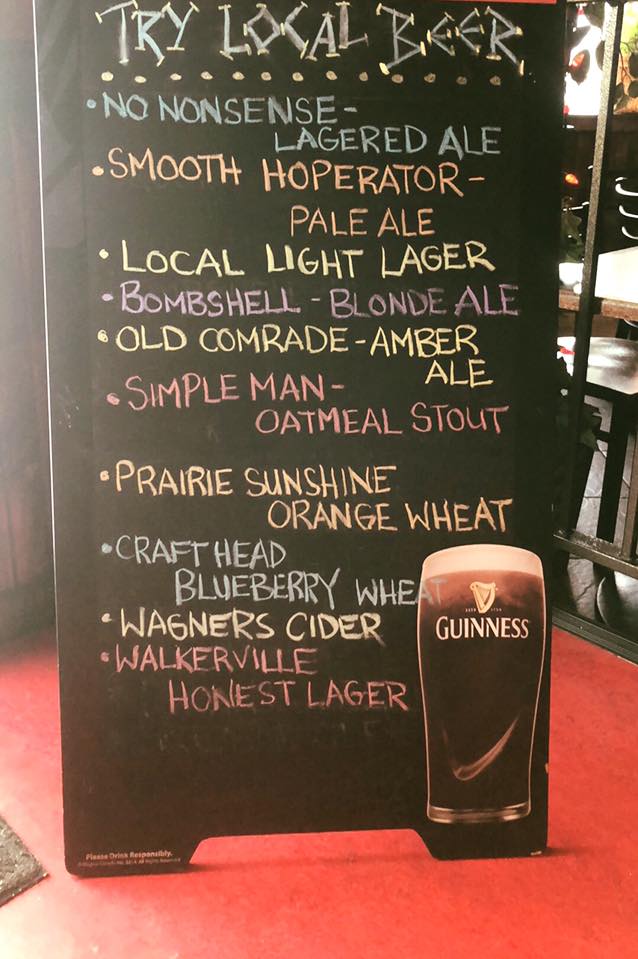 TRY LOCAL BEER
• NO NONSENSE -
LAGERED ALE
• SMOOTH HOPERATOR -
PALE ALE
• LOCAL LIGHT LAGER
• BOMBSHELL - BLONDE ALE
• OLD COMRADE - AMBER
ALE
• SIMPLE MAN -
OATMEAL STOUT
• PRAIRIE SUNSHINE
ORANGE WHEAT
• CRAFT HEAD
BLUEBERRY WHEAT
• WAGNERS CIDER
• WALKERVILLE
HONEST LAGER
GUINNESS
Please Drink Responsibly.